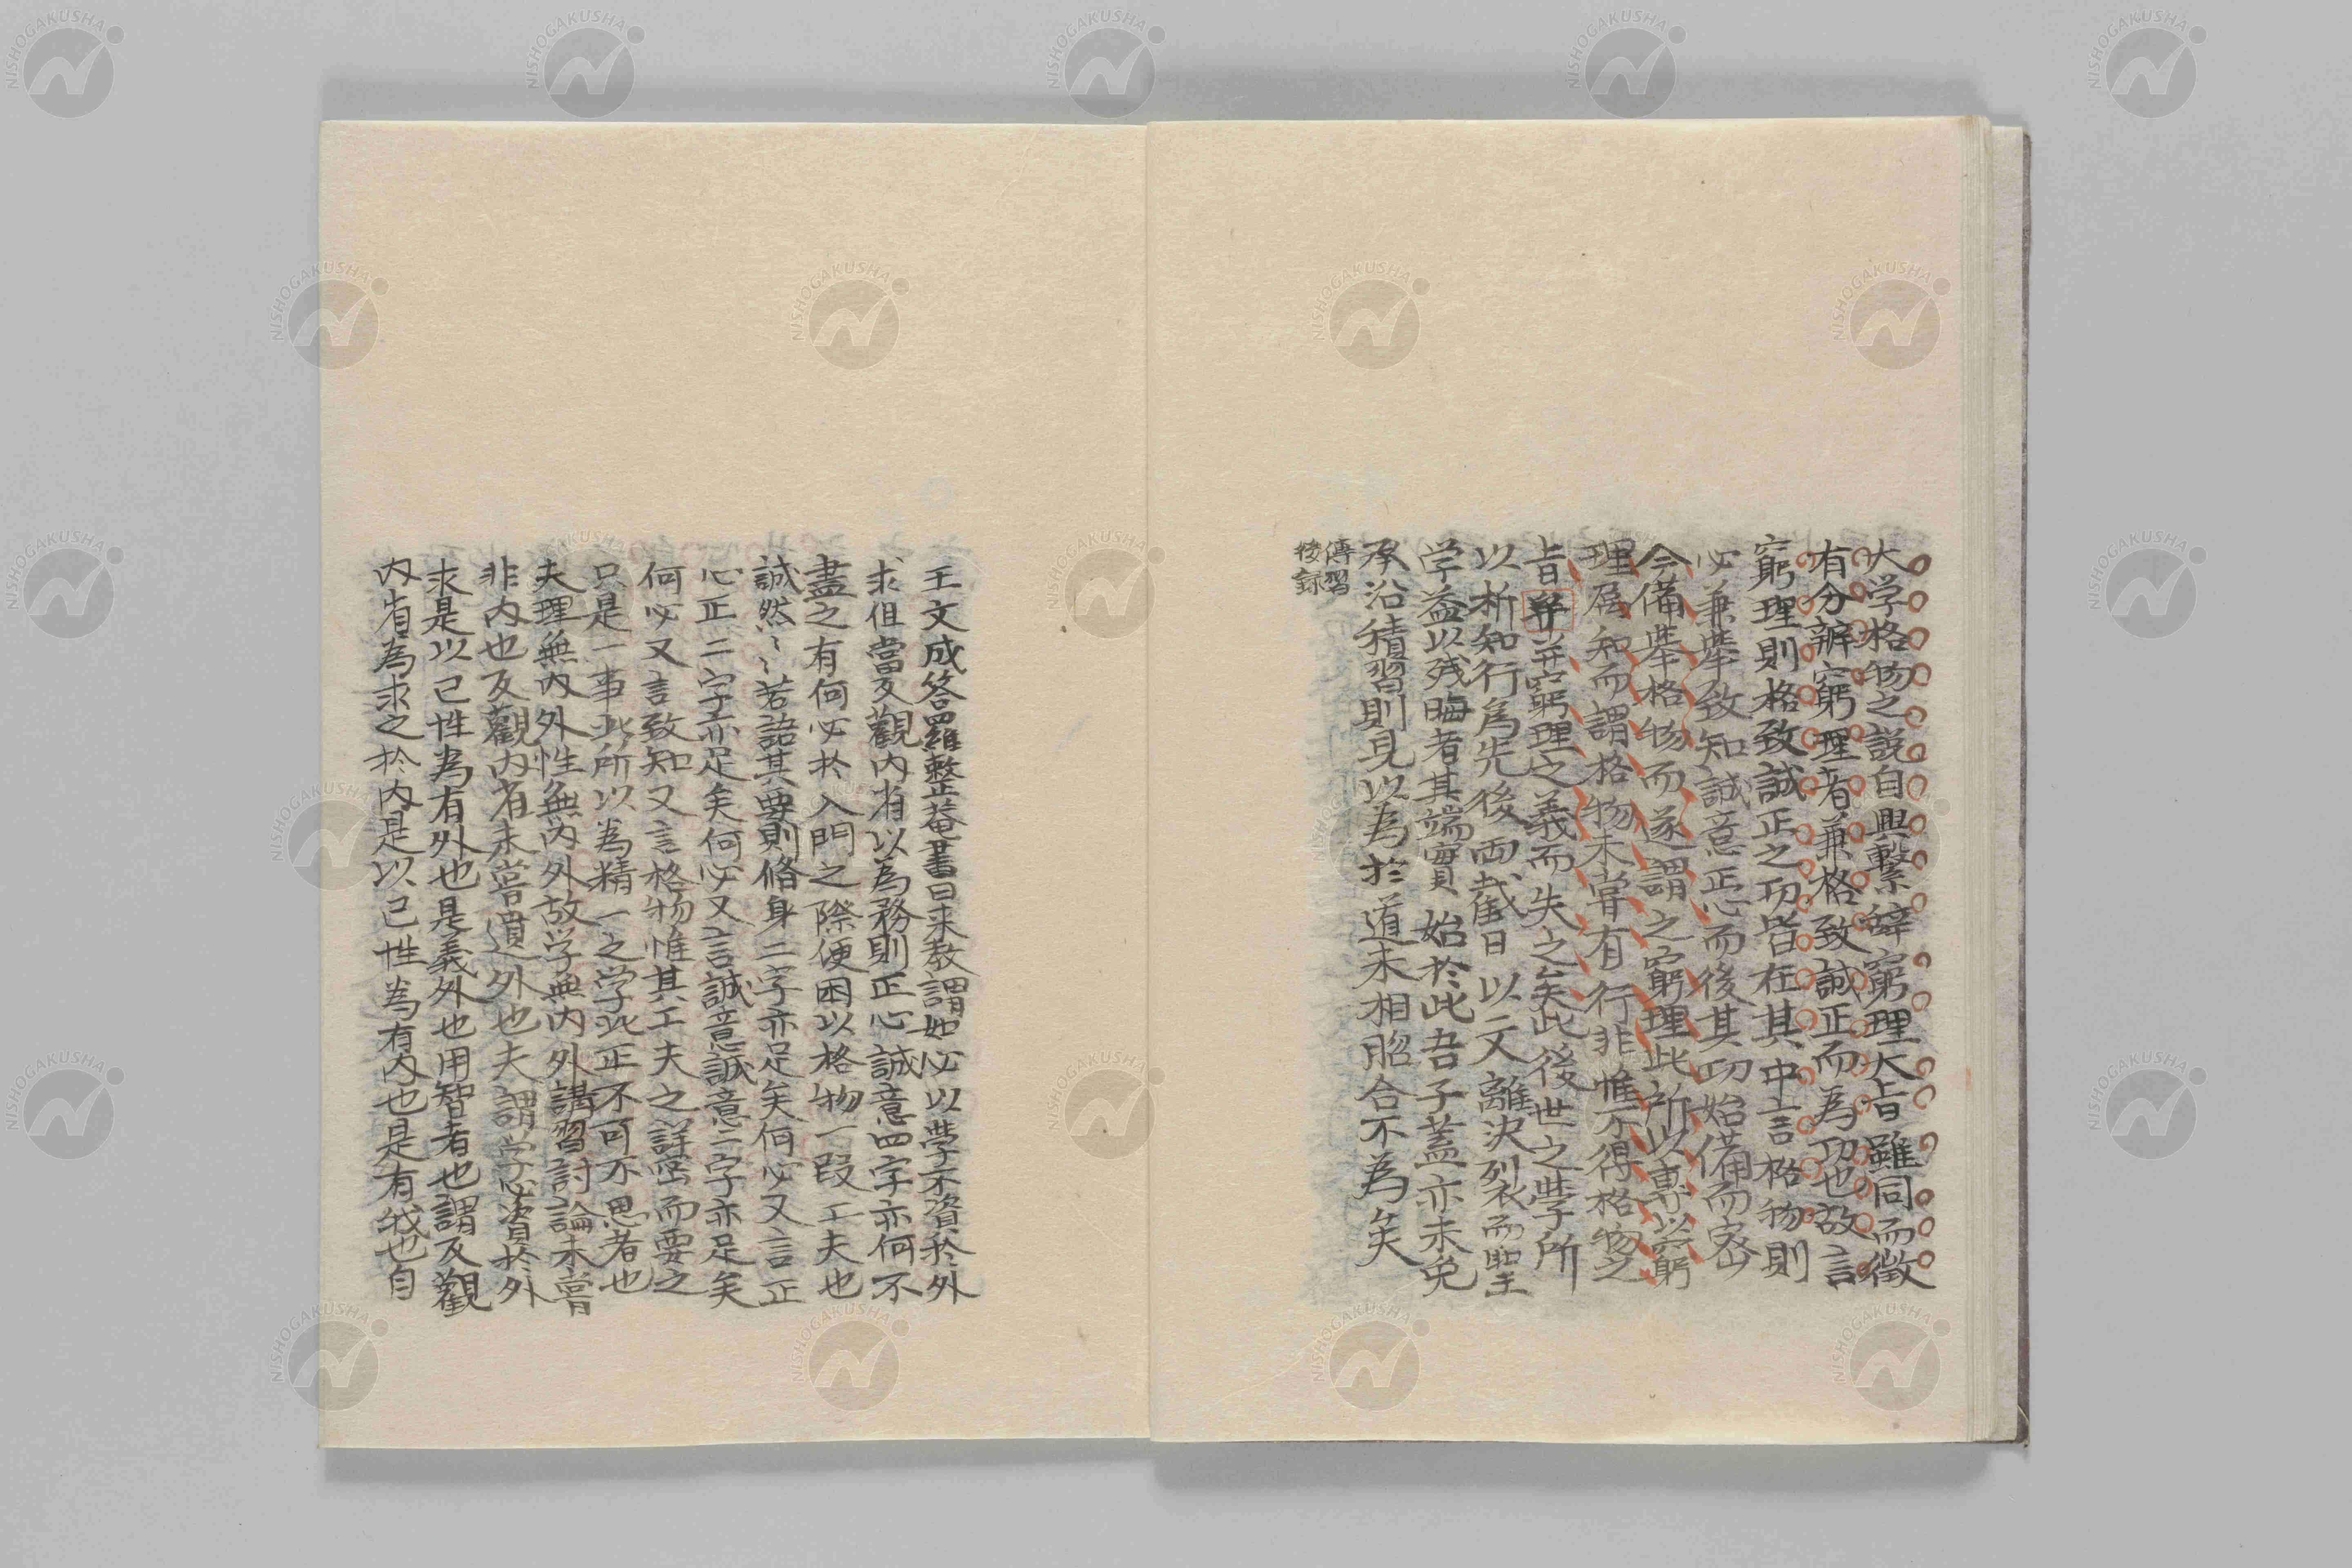 大学格物之説自與繫辞窮理大旨雖同而微
有分辨窮理者兼格致誠正而為功也故言
窮理則格致誠正之功皆在其中言格物則
必兼挙致知誠意正心而後其功始備而密
今偏挙格物而遂謂之窮理此所以専以窮
理属知而謂格物未嘗有行非惟不得格物之
旨并窮理之義而失之矣此後世之学所
以析知行為先後両截日以支離決裂而聖
学益以残晦者其端實始於此吾子蓋亦未免
承沿積習則見以為於道未相脗合不為矣
傳習
後録
王文成答羅整菴書曰来教謂如必以學不資於外
求但當反觀内省以為務則正心誠意四字亦何不
盡之有何必於入門之際便困以格物一段工夫也
誠然〻〻若語其要則脩身二字亦足矣何必又言正
心正心二字亦足矣何必又言誠意誠意二字亦足矣
何必又言致知又言格物惟其工夫之詳密而要之
只是一事此所以為精一之学此正不可不思者也
夫理無内外性無内外故学無内外講習討論未嘗
非内也反觀内省未嘗遺外也夫謂学必資於外
求是以己性為有外也是義外也用智者也謂反觀
内省為求之於内是以己性為有内也是有我也自
NISHOGAKUSHA